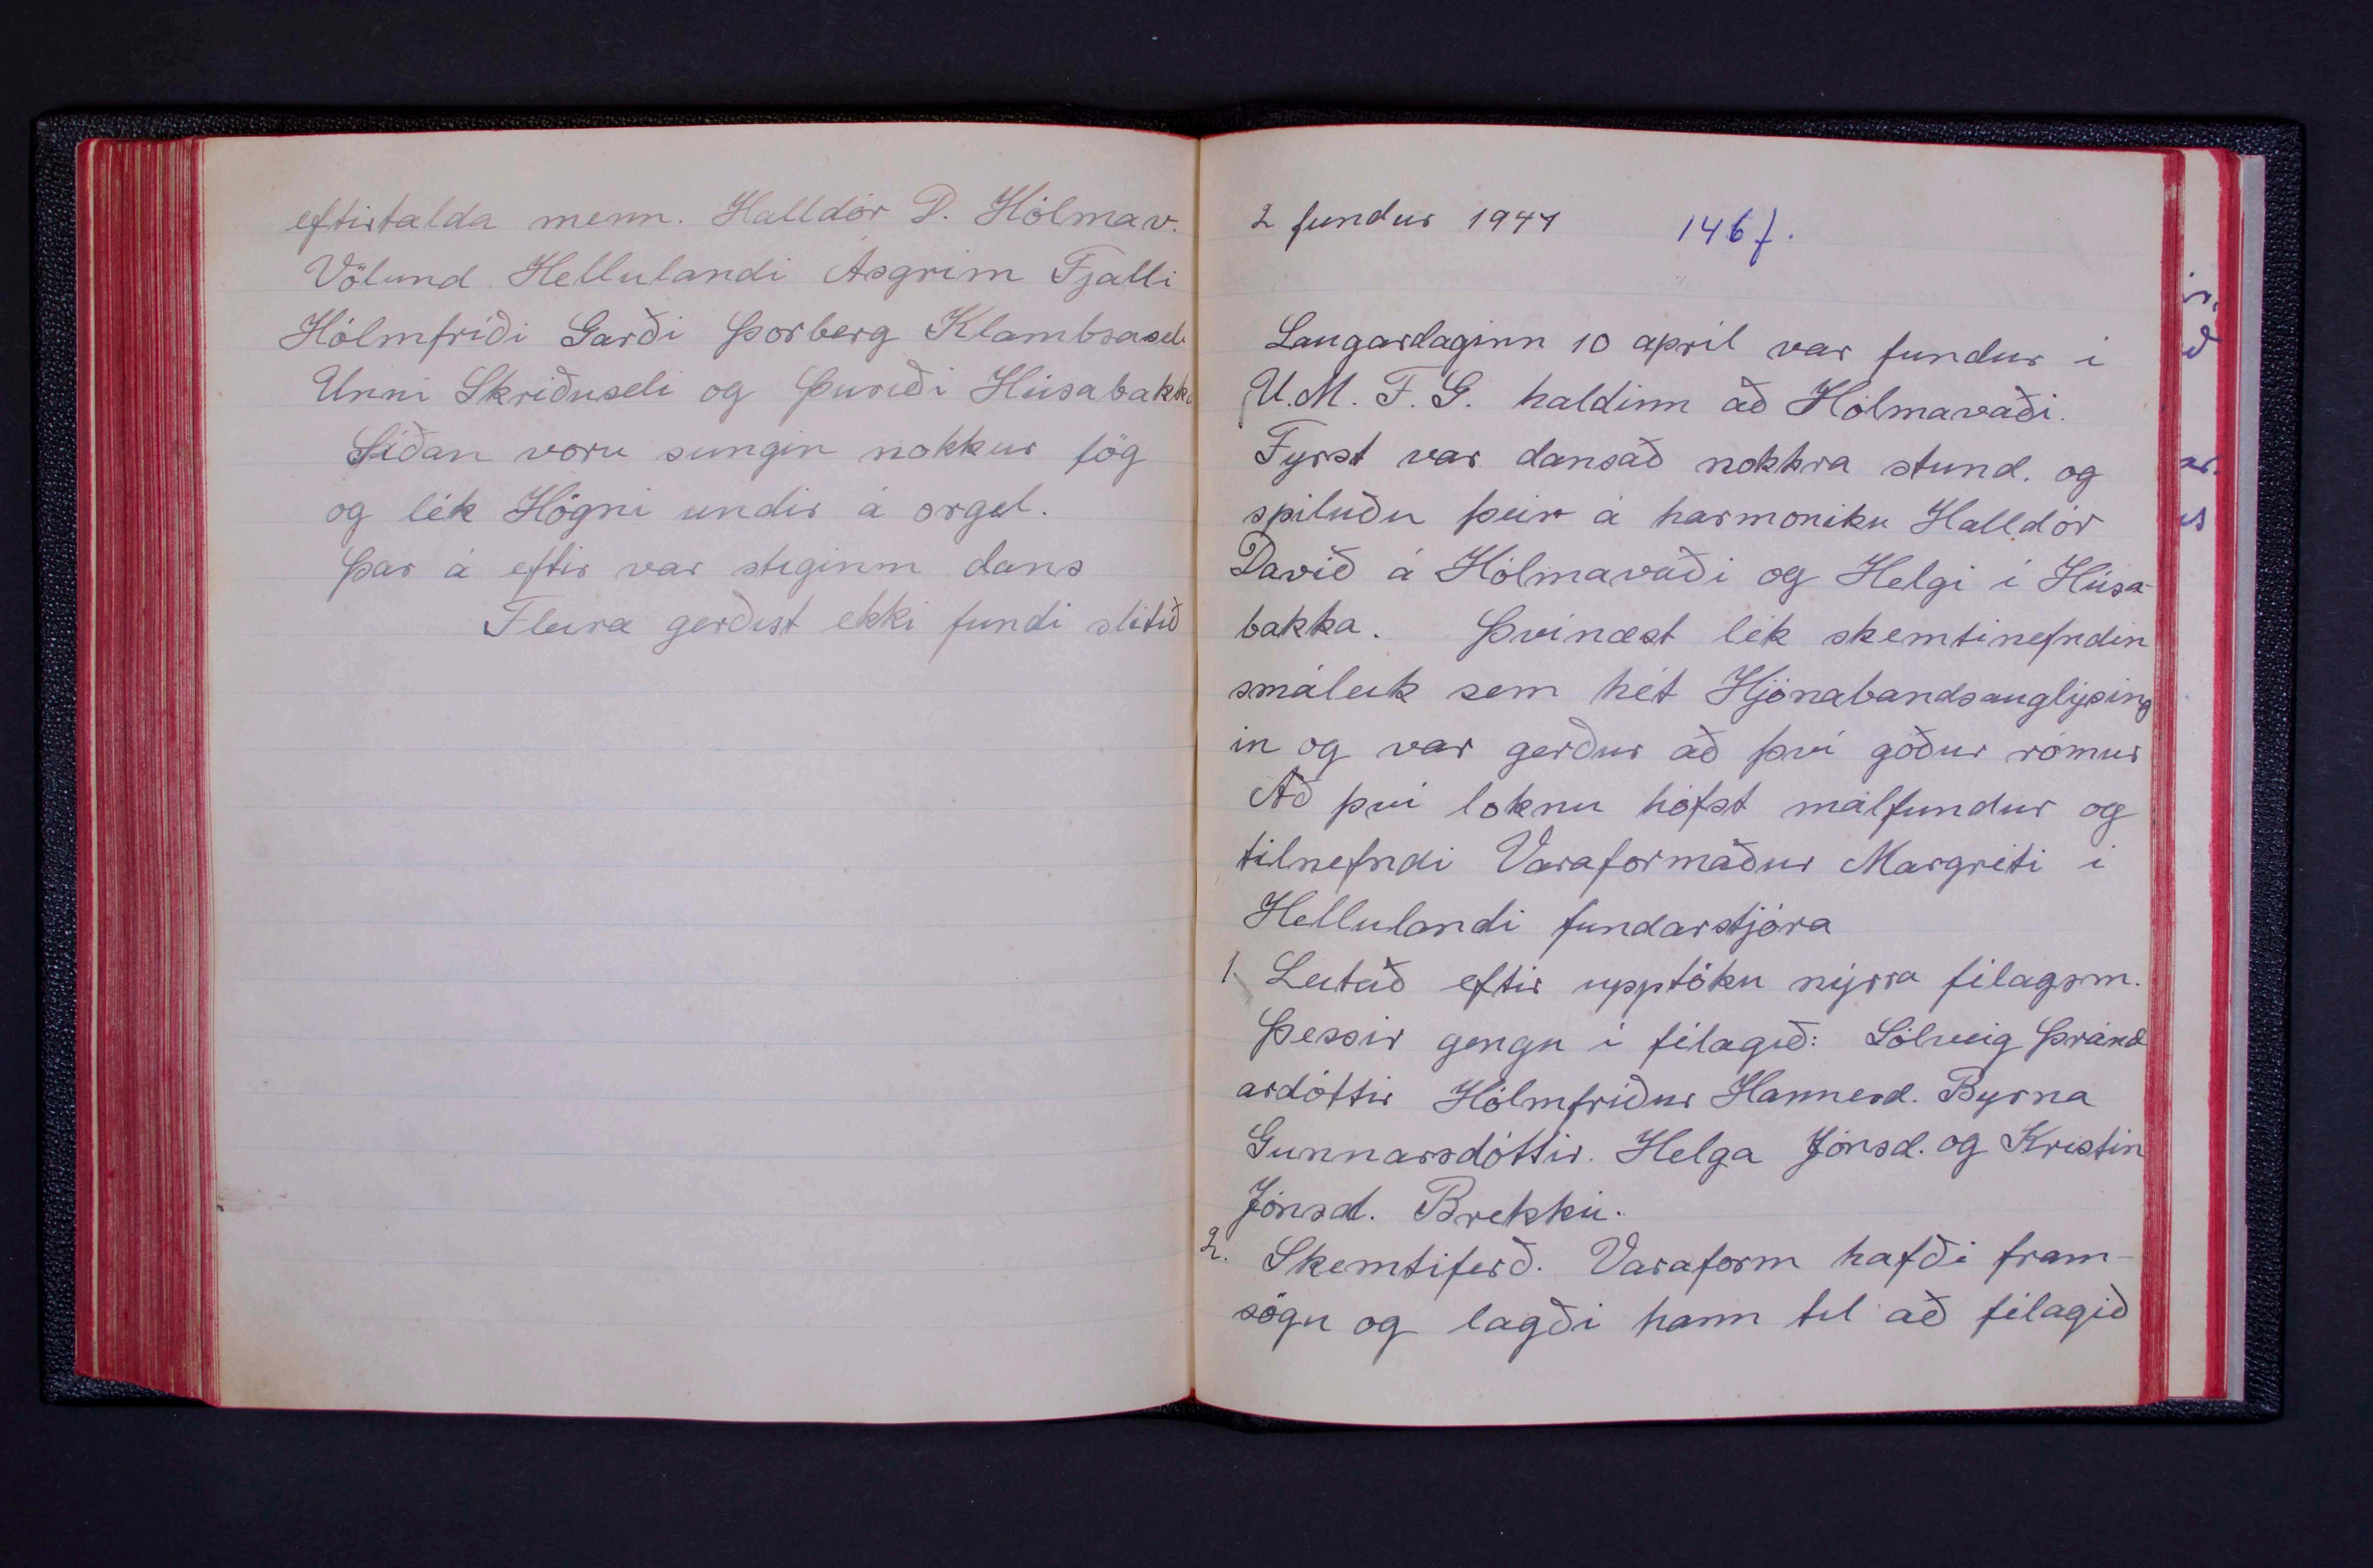 eftirtalda menn. Halldór D. Hólmav.
Völund Hellulandi Ásgrim Fjalli
Hólmfríði Garði Þorberg Klambraseli
Unni Skriðuseli og Þuríði Húsabakka
Síðan voru sungin nokkur lög
og lék Högni undir á orgel.
Þar á eftir var stiginn dans
Fleira gerðist ekki fundi slitið
2 fundur 1944
146 f.
Laugardaginn 10 april var fundur í
U.M.F.G. haldinn að Hólmavaði.
Fyrst var dansað nokkra stund. og
spiluðu þeir á harmoniku Halldór
Davið á Hólmavaði og Helgi í Húsa-
bakka. Þvínæst lék skemtinefndin
smáleik sem hét Hjónabandsauglýsing
in og var gerður að því góður rómur
Að því loknu hófst málfundur og
tilnefndi Varaformaður Margréti í
Hellulandi fundarstjóra
1. Leitað eftir upptöku nýrra félagsm.
Þessir gengu í félagið: Sólveig Þránd
ardóttir Hólmfríður Hannesd. Byrna
Gunnarsdóttir. Helga Jónsd. og Kristin
Jónsd. Brekku.
2. Skemtiferð. Varaform hafði fram-
sögu og lagði hann til að félagið